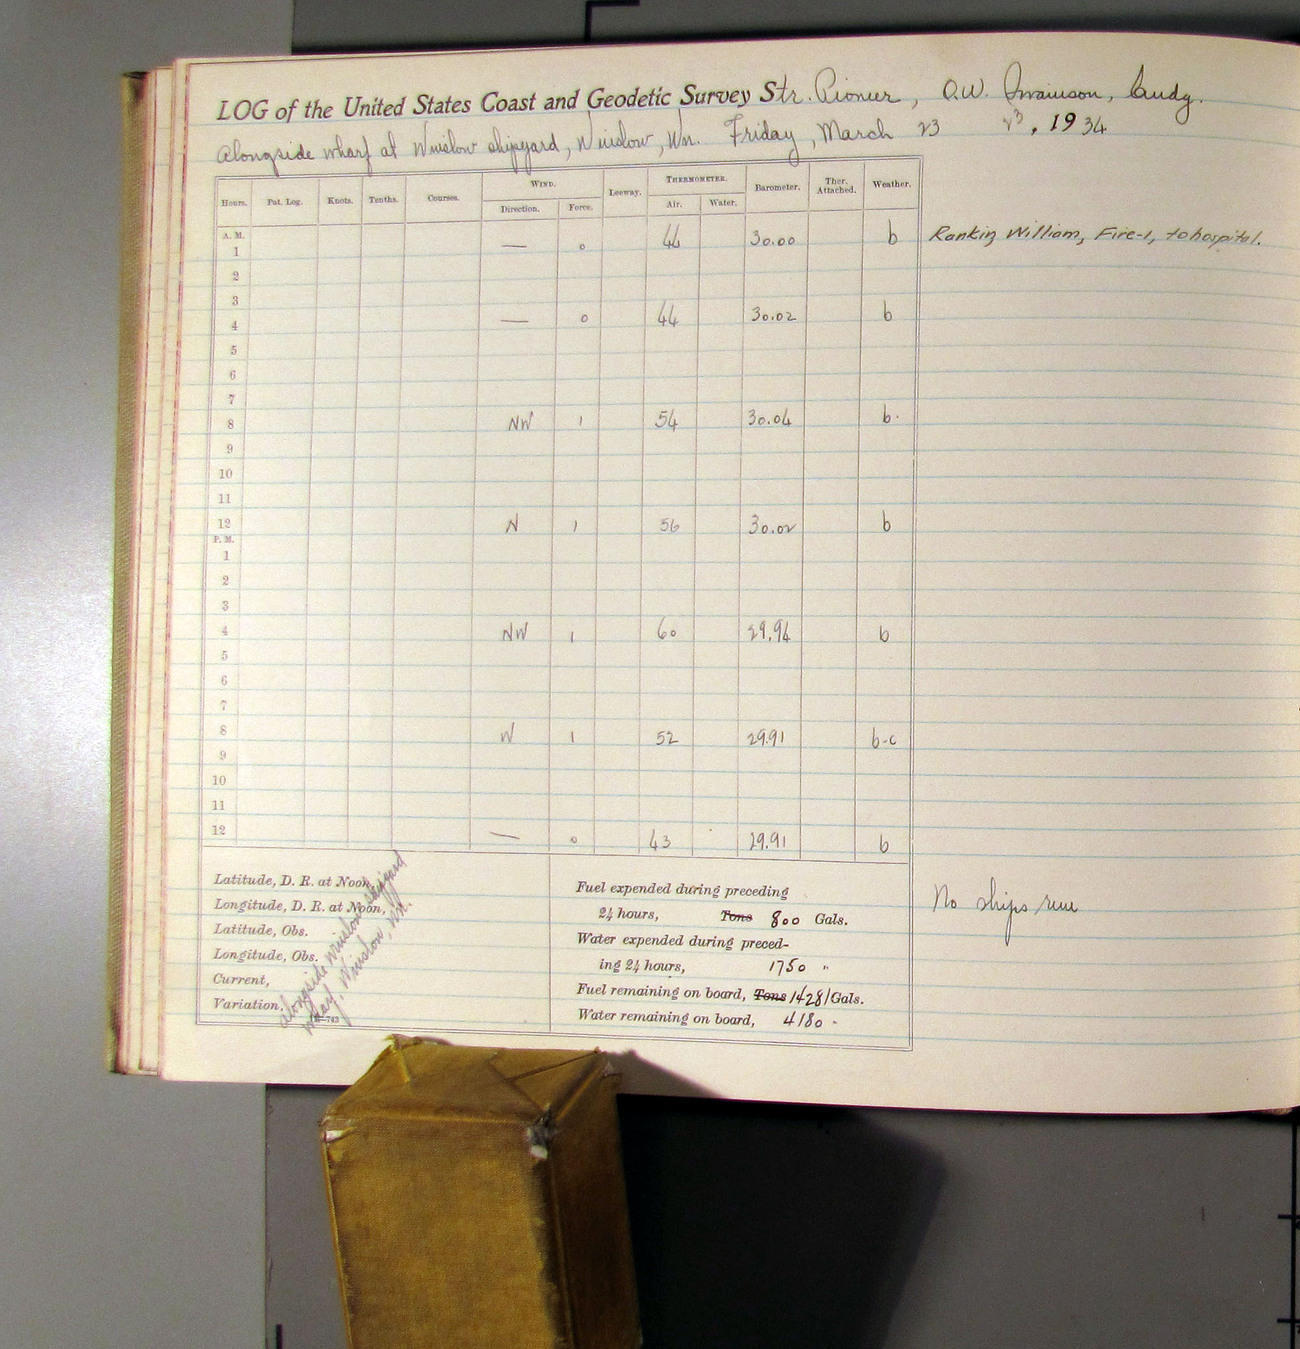 LOG of the United States Coast and Geodetic Survey Str. Pioneer, O.W. Swainson, Comdg.
Alongside wharf at Winslow shipyard, Winslow, Wn. Friday, March 23 23, 1934
Hours. Pat. Log. Knots. Tenths. Courses. WIND. Direction. Force. Leeway. THERMOMETER. Air. Water. Barometer. Ther. Attached. Weather.
A. M.
1 — 0 44 30.00 b Rankin, William, Fire-1, to hospital.
2
3
4 — 0 44 30.02 b
5
6
7
8 NW 1 54 30.04 b.
9
10
11
12 N 1 56 30.02 b
P. M.
1
2
3
4 NW 1 60 29.94 b
5
6
7
8 W 1 52 29.91 b-c
9
10
11
12 — 0 43 29.91 b
Latitude, D. R. at Noon,
Longitude, D. R. at Noon,
Latitude, Obs.
Longitude, Obs.
Current,
Variation,
alongside Winslow shipyard
wharf, Winslow, Wn.
Fuel expended during preceding
24 hours, Tons 800 Gals.
Water expended during preced-
ing 24 hours, 1750 "
Fuel remaining on board, Tons 14281 Gals.
Water remaining on board, 4180 "
No ships run